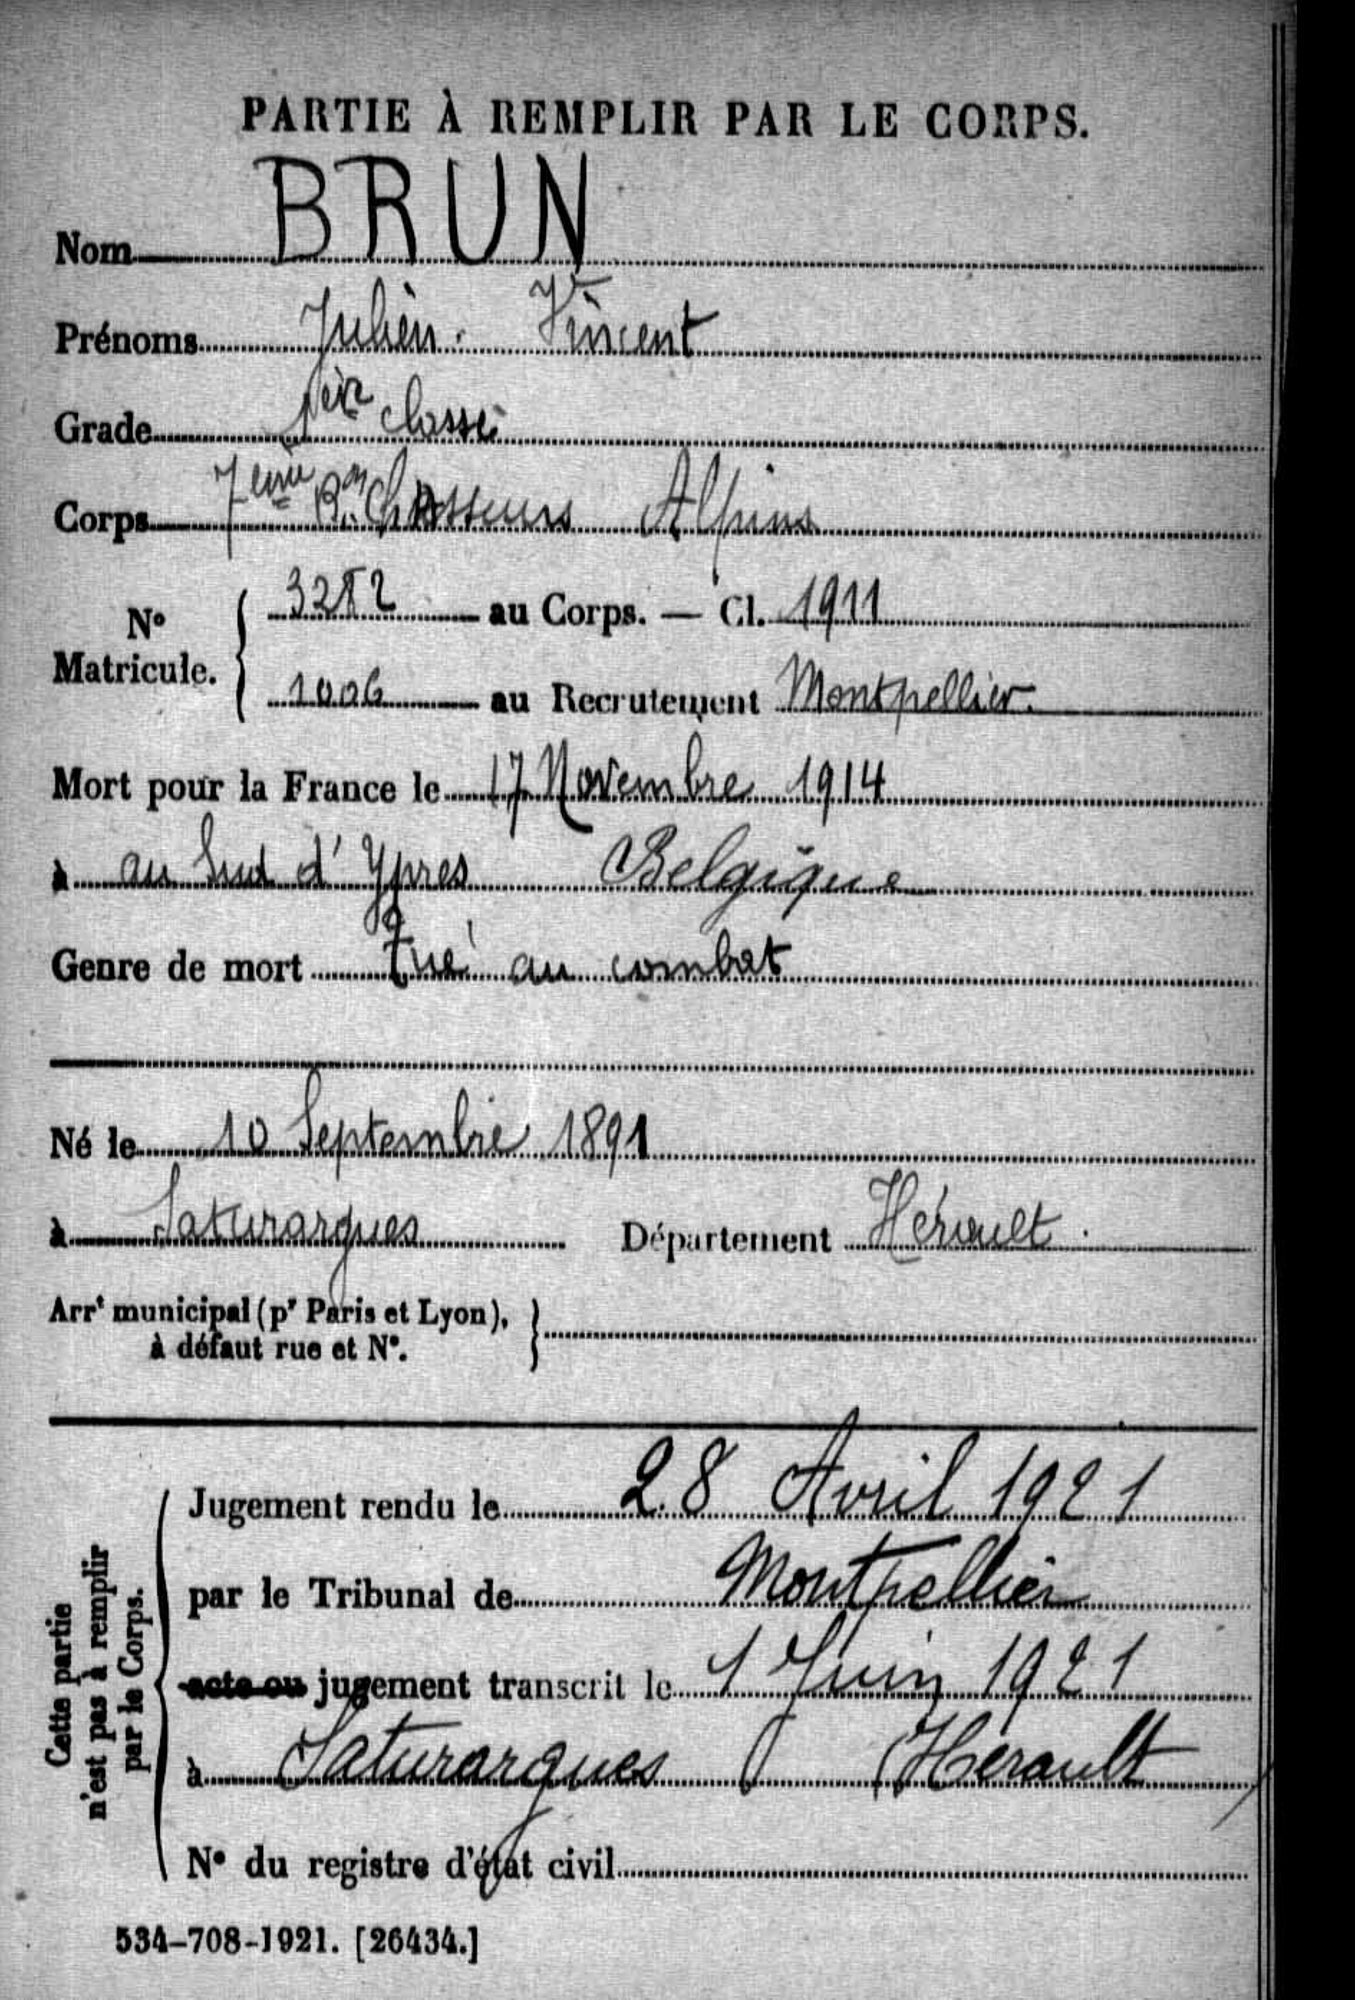 PARTIE À REMPLIR PAR LE CORPS.
Nom BRUN
Prénoms Julien Vincent
Grade 1ère classe
Corps 7eme Bon Chasseurs Alpins
No Matricule. 3282 au Corps. — Cl. 1911
1006 au Recrutement Montpellier
Mort pour la France le 17 Novembre 1914
à au Sud d'Ypres Belgique
Genre de mort Tué au combat
Né le 10 Septembre 1891
à Saturargues Département Hérault
Arrt municipal (pr Paris et Lyon),
à défaut rue et No.
Cette partie
n'est pas à remplir
par le Corps.
Jugement rendu le 28 Avril 1921
par le Tribunal de Montpellier
acte ou jugement transcrit le 1 Juin 1921
à Saturargues (Hérault)
No du registre d'état civil
534-708-1921. [26434.]